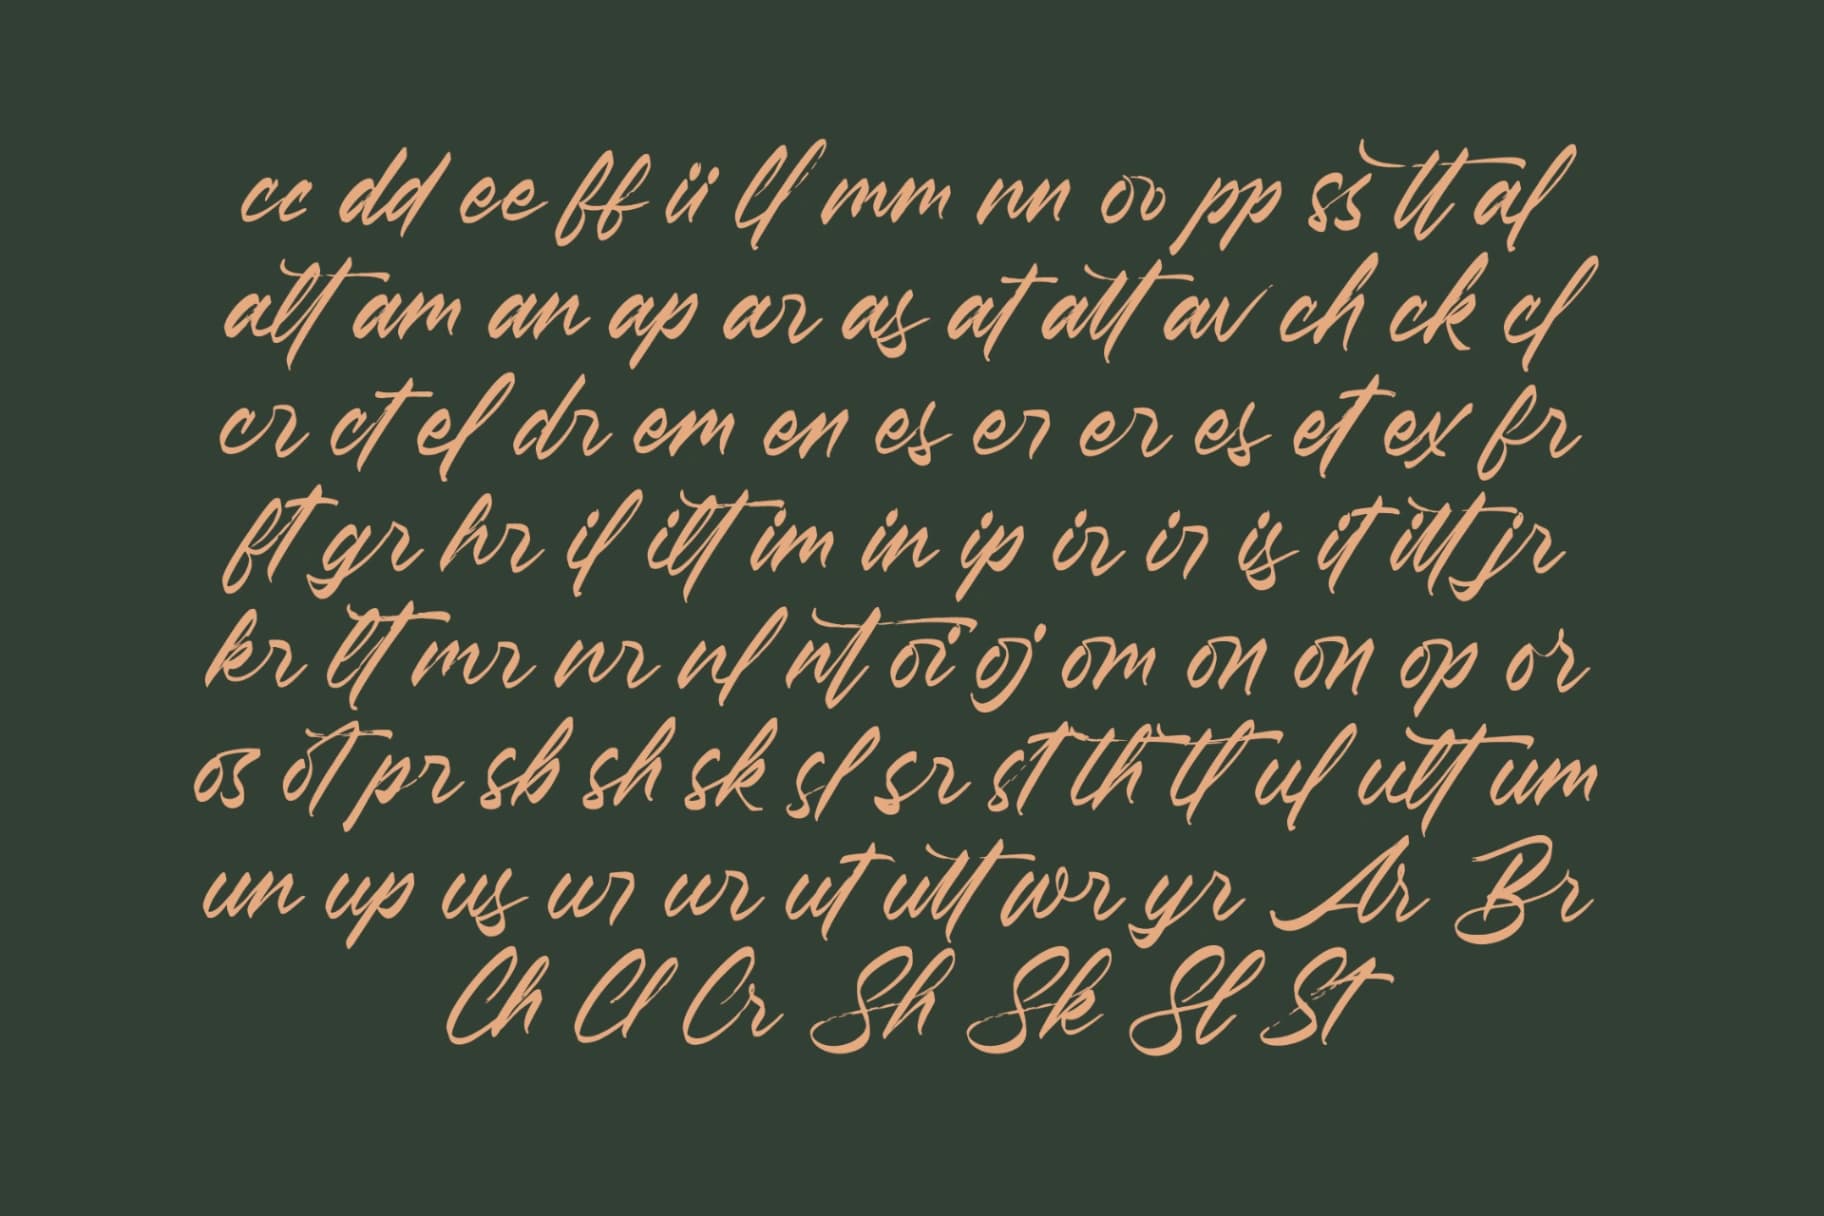 cc dd ee ff ii ll mm nn oo pp ss tt al
alt am an ap ar as at att av ch ck cl
cr ct el dr em en es er er es et ex fr
ft gr hr il ilt im in ip ir ir is it itt jr
kr lt mr nr nl nt oi oj om on on op or
os ot pr sb sh sk sl sr st th tl ul ult um
un up us ur ur ut utt wr yr Ar Br
Ch Cl Cr Sh Sk Sl St